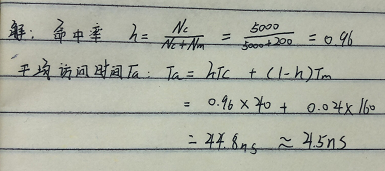 解: 命中率 h = Nc/(Nc+Nm) = 5000/(5000+200) = 0.96
平均访问时间Ta: Ta = hTc + (1-h)Tm
= 0.96 × 40 + 0.04 × 160
= 44.8ns ≈ 45ns